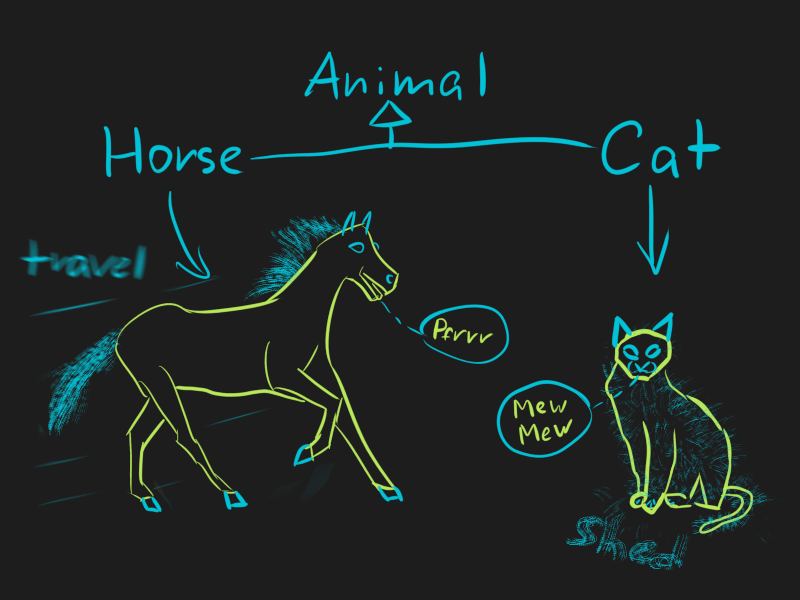 Animal
Horse
Cat
travel
Pfrrr
Mew
Mew
Shed